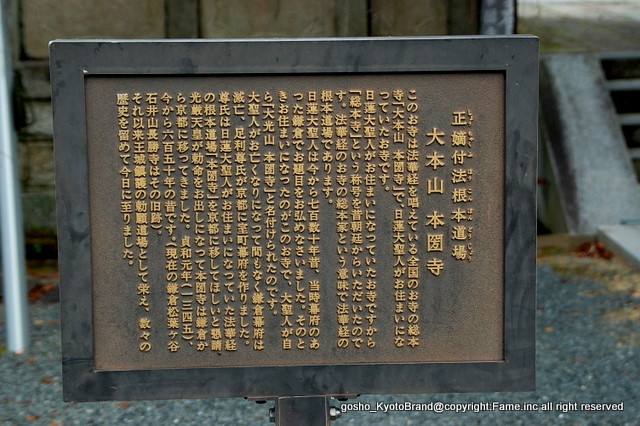 正嫡付法根本道場
大本山 本圀寺
このお寺は法華経を唱えている全国のお寺の総本
寺「大本山 本圀寺」で、日蓮大聖人がお住まいにな
っていたお寺です。
日蓮大聖人がお住まいになっていたお寺ですから
「総本寺」という称号を昔朝廷からいただいたので
す。法華経のお寺の総本家という意味で法華経の
根本道場であります。
日蓮大聖人は今から七百数十年昔、当時幕府のあ
った鎌倉でお題目をお弘めなさいました。そのと
きお住まいになったのがこのお寺で、大聖人が自
ら「大光山 本圀寺」と名付けられたのです。
大聖人がお亡くなりになって間もなく鎌倉幕府は
滅亡、足利尊氏が京都に室町幕府を作りました。
尊氏は日蓮大聖人がお住まいになっていた法華経
の根本道場「本圀寺」を京都に移してほしいと懇請
光厳天皇が勅命をお出しになって本圀寺は鎌倉か
ら京都に移ってきました。貞和元年(一三四五)、
今から六百五十年の昔です。(現在の鎌倉松葉ヶ谷
石井山長勝寺はその旧跡)
それ以来王城鎮護の勅願道場として栄え、数々の
歴史を留めて今日に至りました。
gosho_KyotoBrand@copyright.Fame.inc all right reserved